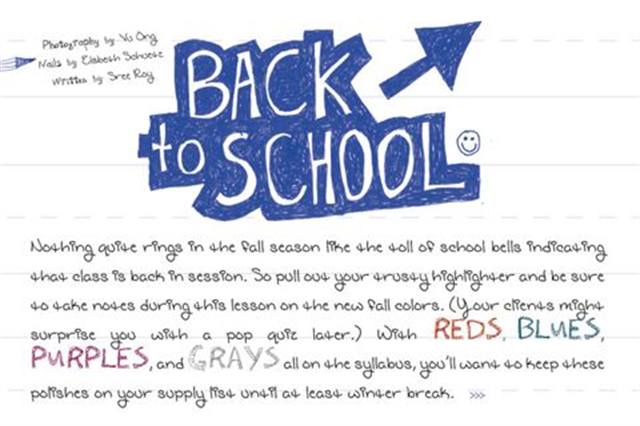 Photography by Vu Ong
Nails by Elsbeth Schuetz
Written by Sree Roy
BACK
to SCHOOL
Nothing quite rings in the fall season like the toll of school bells indicating
that class is back in session. So pull out your trusty highlighter and be sure
to take notes during this lesson on the new fall colors. (Your clients might
surprise you with a pop quiz later.) With REDS, BLUES,
PURPLES, and GRAYS all on the syllabus, you'll want to keep these
polishes on your supply list until at least winter break. >>>